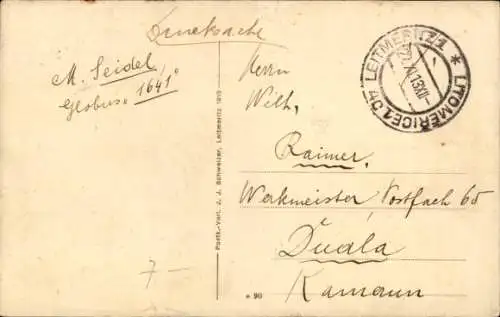 Drucksache
M. Seidel
Globus "1641"
Herrn
Wilh.
Raimer,
Werkmeister Postfach 65
Duala
Kamerun
LEITMERITZ 1 * LITOMĚŘICE 1
13 XII
Postk.-Verl. J. J. Schweizer, Leitmeritz 1913
* 90
7 –